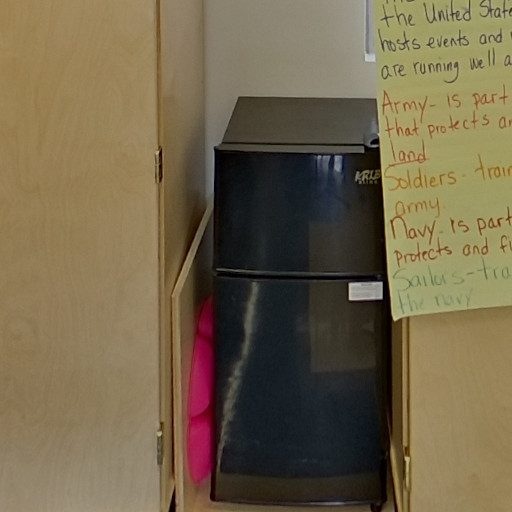 the United State
hosts events and
are running well a
Army- is part
that protects an
land
Soldiers- train
army.
Navy- is part
protects and fi
Sailors-tra
the navy